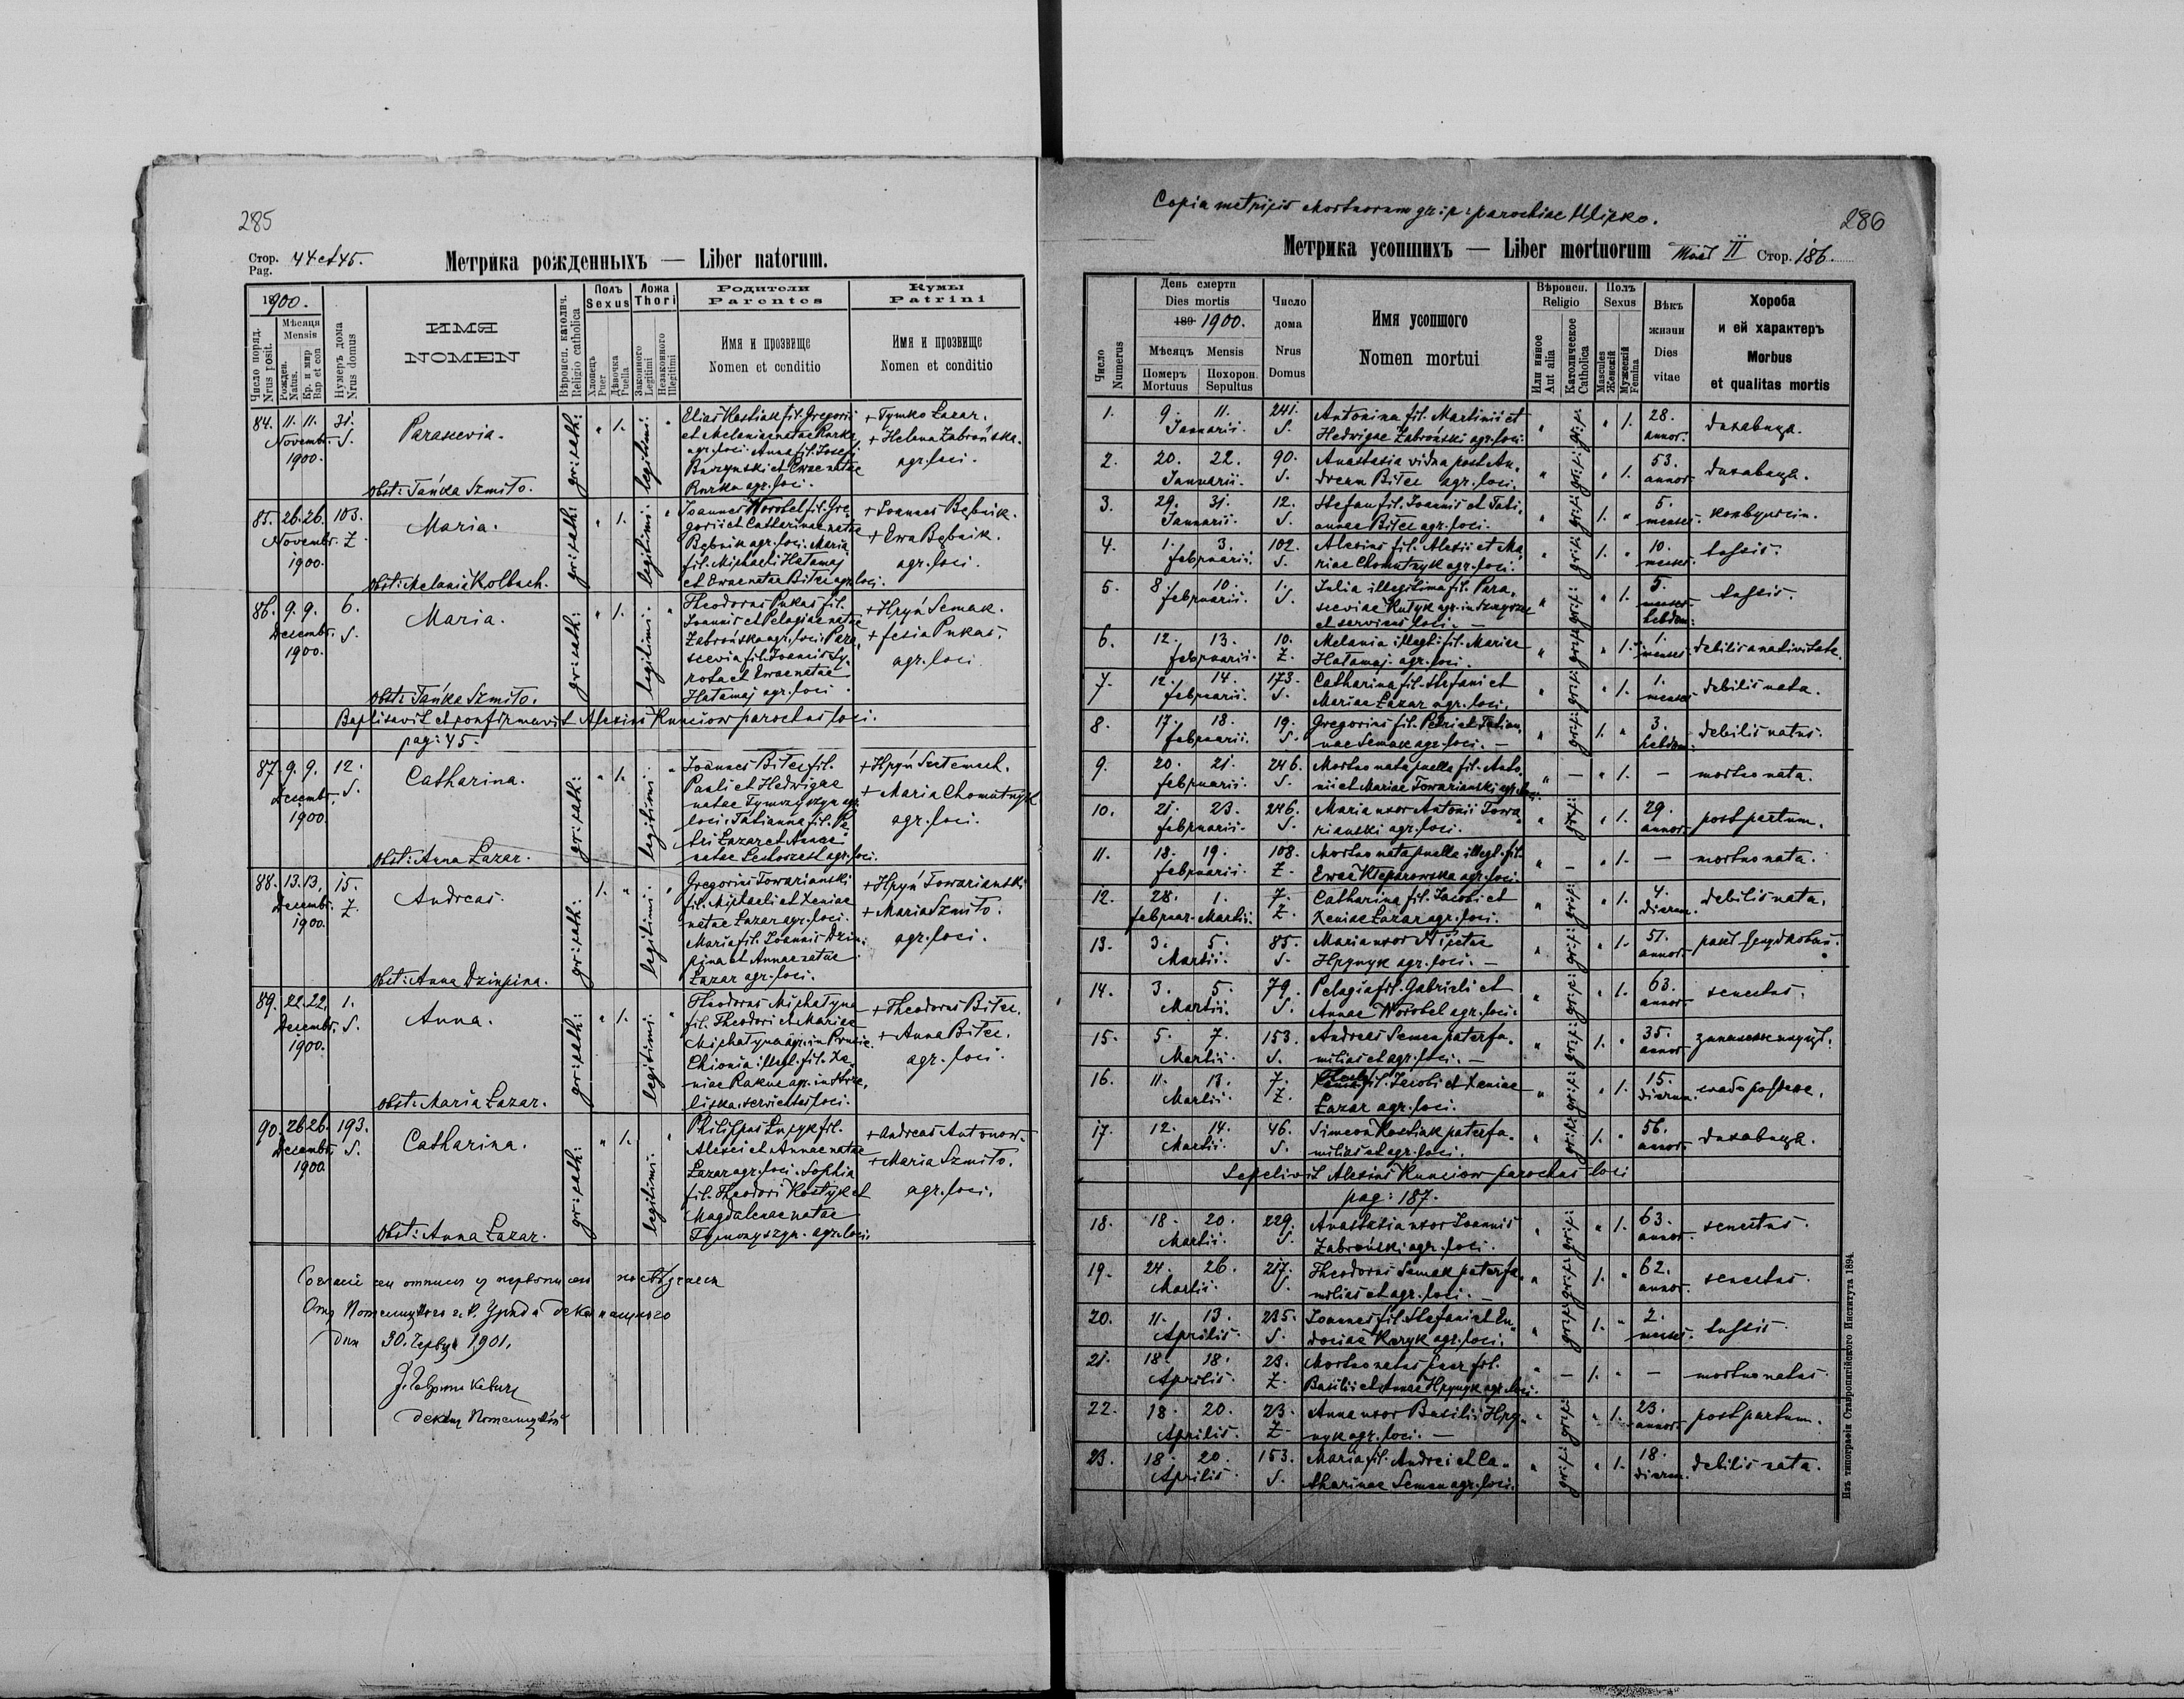 285
Стор. Pag. 44 et 45.
Метрика рожденныхъ — Liber natorum.
1900.
Число поряд. Nrus posit.
Мѣсяця Mensis
Рожден. Natus.
Кр. и мир Bap et con
Нумеръ дома Nrus domus
ИМЯ
NOMEN
Вѣроисп. католич. Religio catholica
Полъ Sexus
Хлопець Puer
Дѣвочка Puella
Ложа Thori
Законного Legitimi
Незаконного Illegitimi
Родители
Parentes
Имя и прозвище
Nomen et conditio
Кумы
Patrini
Имя и прозвище
Nomen et conditio
84. 11. 11. Novembr. 1900. 31. S.
Parascevia.
obst: Tańka Szmito.
gr: cath: " 1. legitimi. "
Elias Kostiak fil. Gregorii
et Melaniae natae Rurka
agr. loci. Anna fil. Josefi
Burzynski et Evae natae
Rurka agr. loci.
+ Tymko Łazar.
+ Helena Zabrońska.
agr. loci.
85. 26. 26. Novembr. 1900. 103. Z.
Maria.
obst: Melania Kolbuch.
gr: cath: " 1. legitimi. "
Joannes Worobel fil. Gre-
gorii et Catharinae natae
Bębnik agr. loci. Maria
fil. Michaeli Hatamaj
et Ewae natae Bitec agr. loci.
+ Joannes Bębnik.
+ Ewa Bębnik.
agr. loci.
86. 9. 9. Decembr. 1900. 6. S.
Maria.
Obst: Tańka Szmito.
gr: cath: " 1. legitimi. "
Theodorus Pukas fil.
Joannis et Pelagiae natae
Zabrońska agr. loci. Para-
scevia fil. Joannis Sy-
rota et Ewae natae
Hatamaj agr. loci.
+ Hryń Semak.
+ Fesia Pukas.
agr. loci.
Baptisavit et confirmavit Alexius Kunciow parochus loci.
pag: 45.
87. 9. 9. Decembr. 1900. 12. S.
Catharina.
Obst: Anna Łazar.
gr: cath: " 1. legitimi. "
Joannes Bitec fil.
Pauli et Hedwigae
natae Tymczyszyn agr.
loci. Tatianna fil. Pe-
tri Łazar et Annae
natae agr. loci.
+ Hryń
+ Maria Chomutnyk
agr. loci.
88. 13. 13. Decembr. 1900. 15. Z.
Andreas.
Obst: Anna Dziupina.
gr: cath: 1. " legitimi. "
Gregorius Towarianski
fil. Michaeli et Xeniae
natae Łazar agr. loci.
Maria fil. Joannis Dziu-
pina et Annae natae
Łazar agr. loci.
+ Hryń Towarianski
+ Maria Szmito.
agr. loci.
89. 22. 22. Decembr. 1900. 1. S.
Anna.
obst: Maria Łazar.
gr: cath: " 1. legitimi. "
Theodorus Michatyna
fil. Theodori et Mariae
Michatyna agr. in
Chionia illegl. fil. Xe-
niae Rakus agr. in Strze-
liska, serviens loci.
+ Theodorus Bitec.
+ Anna Bitec.
agr. loci.
90. 26. 26. Decembr. 1900. 193. S.
Catharina.
Obst: Anna Łazar.
gr: cath: " 1. legitimi. "
Philippus Łucyk fil.
Alexei et Annae natae
Łazar agr. loci. Sophia
fil. Theodori Kostyk et
Magdalenae natae
Tymczyszyn agr. loci.
+ Andreas Antonow.
+ Maria Szmito.
agr. loci.
дня 30. Червця 1901.
286
Copia metricis Mortuorum gr: c: parochiae
Метрика усопшихъ — Liber mortuorum Tom II Стор. 186.
Число Numerus
День смерти
Dies mortis
189 1900.
Мѣсяцъ Mensis
Померъ Mortuus
Похорон. Sepultus
Число дома
Nrus Domus
Имя усопшого
Nomen mortui
Вѣроисп. Religio
Или инное Aut alia
Католическое Catholica
Полъ Sexus
Masculus Женскій
Мужескій Femina
Вѣкъ жизни
Dies vitae
Хороба
и ей характеръ
Morbus
et qualitas mortis
1. 9. 11. Januarii. 241. S. Antonina fil. Martinii et Hedvigae Zabroński agr. loci. " gr: c: " 1. 28. annor. духавиця.
2. 20. 22. Januarii. 90. S. Anastasia vidua post An- dream Bitec agr. loci. " gr: c: " 1. 53. annor. духавиця.
3. 29. 31. Januarii. 12. S. Stefan fil. Joannis et Tati- annae Bitec agr. loci. " gr: c: 1. " 5. menses. конвульсіи.
4. 1. 3. Februarii. 102. S. Alexius fil. Alexii et Ma- riae Chomutnyk agr. loci. " gr: c: 1. " 10. menses. tussis.
5. 8. 10. Februarii. 1. S. Julia illegitima fil. Para- sceviae Kutyk agr. in et serviens loci. — " gr: c: " 1. 5. menses. hebdom: tussis.
6. 12. 13. Februarii. 10. Z. Melania illegl: fil. Mariae Hatamaj agr. loci. " gr: c: " 1. 1. menses debilis a nativitate.
7. 12. 14. Februarii. 173. S. Catharina fil. Stefani et Mariae Łazar agr. loci. " gr: c: " 1. 1. menses debilis nata.
8. 17. 18. Februarii. 19. S. Gregorius fil. Petri et Tatian- nae Semak agr. loci. — " gr: c: 1. " 3. hebdom: debilis natus.
9. 20. 21. Februarii. 246. S. Mortuo nata puella fil. Anto- nii et Mariae Towarianski agr. loci. " — " 1. — mortuo nata.
10. 21. 23. Februarii. 246. S. Maria uxor Antonii Towa- rianski agr. loci. " gr: c: " 1. 29. annor. post partum.
11. 18. 19. Februarii. 108. Z. Mortuo nata puella illegl. fil. Ewae Kleparowska agr. loci. " — " 1. — mortuo nata.
12. 28. 1. Februar. Martii. 7. Z. Catharina fil. Jacobi et Xeniae Łazar agr. loci. " gr: c: " 1. 4. dierum. debilis nata.
13. 3. 5. Martii. 85. S. Maria uxor Nicetae Hrynyk agr. loci. — " gr: c: " 1. 51. annor.
14. 3. 5. Martii. 79. S. Pelagia fil. Gabrieli et Annae Worobel agr. loci. " gr: c: " 1. 63. annor. senectus.
15. 5. 7. Martii. 153. S. Andreas Semen paterfa- milias et agr. loci. — " gr: c: 1. " 35. annor
16. 11. 13. Martii. 7. Z. fil. Jacobi et Xeniae Łazar agr. loci. " gr: c: " 1. 15. dierum.
17. 12. 14. Martii. 46. S. Simeon Kostiak paterfa- milias et agr. loci. " gr: c: 1. " 56. annor. духавиця.
Sepelivit Alexius Kunciow parochus loci
pag: 187.
18. 18. 20. Martii. 229. S. Anastasia uxor Joannis Zabroński agr. loci. " gr: c: " 1. 63. annor. senectus.
19. 24. 26. Martii. 217. S. Theodorus Semak paterfa- milias et agr. loci. — " gr: c: 1. " 62. annor. senectus.
20. 11. 13. Aprilis. 235. S. Joannes fil. Stefani et Eu- dociae Karyk agr. loci. " gr: c: 1. " 2. menses. tussis.
21. 18. 18. Aprilis. 23. Z. Mortuo natus puer fil. Basilii et Annae Hrynyk agr. loci. " — 1. " — mortuo natus.
22. 18. 20. Aprilis. 23. Z. Anna uxor Basilii Hry- nyk agr. loci. — " gr: c: " 1. 23. annor. post partum.
23. 18. 20. Aprilis. 153. S. Maria fil. Andrei et Ca- tharinae Semen agr. loci. " gr: c: " 1. 18. dierum. debilis nata.
Изъ типографіи Ставропигійского Института 1894.